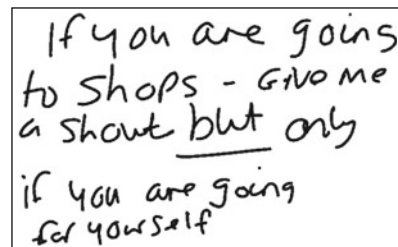 If you are going
to shops - Give me
a shout but only
if you are going
for yourself